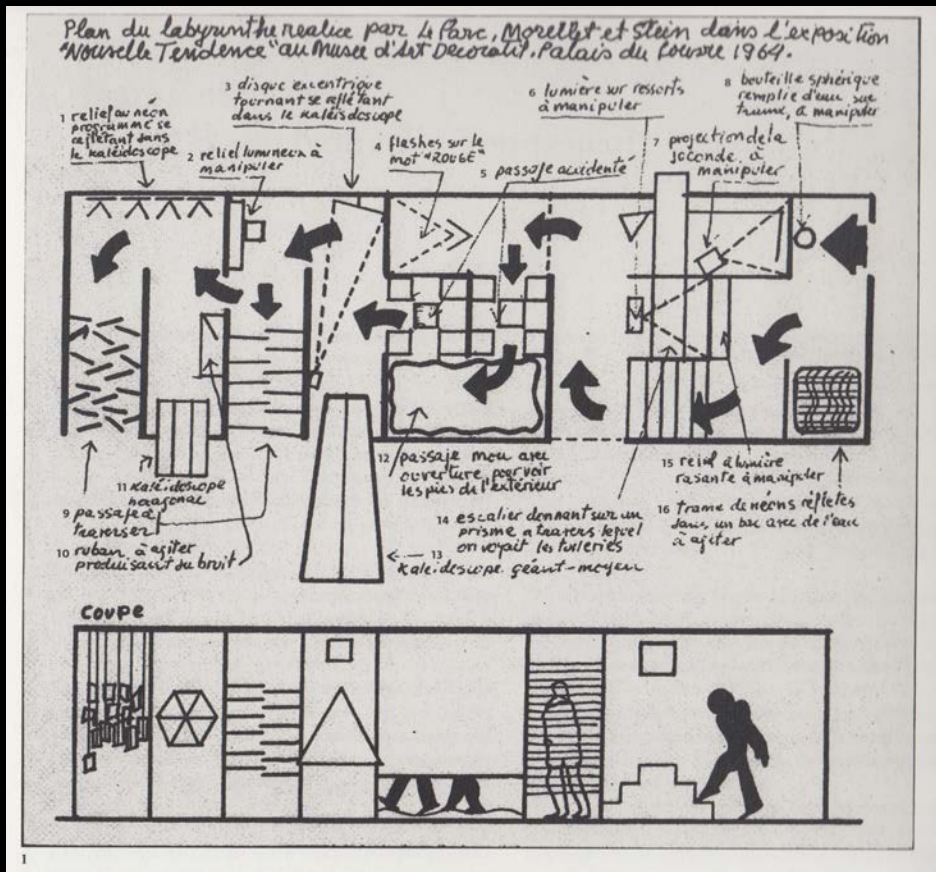 Plan du labyrunthe realice par Le Parc, Morellet et Stein dans l'exposition
"Nouvelle Tendence" au Musee d'Art Decoratif. Palais du Louvre 1964.
1 relief au néon
programmé se
reflétant dans
le kaléidoscope
2 relief lumineux à
manipuler
3 disque excentrique
tournant se reflétant
dans le kaléidoscope
4 flashes sur le
mot "ROUGE"
5 passaje accidenté
6 lumière sur ressorts
à manipuler
7 projection de la
Joconde à
manipuler
8 bouteille sphérique
remplie d'eau sur
trame, à manipuler
9 passaje à
traverser
10 ruban à agiter
produisant du bruit
11 Kaléidoscope
hexagonal
12 passaje mou avec
ouverture pour voir
les pies de l'extérieur
13
Kaleidoscope géant-moyen
14 escalier donnant sur un
prisme a travers lequel
on voyait les tuileries
15 relief à lumière
rasante à manipuler
16 trame de néons réfletes
dans un bac avec de l'eau
à agiter
COUPE
1